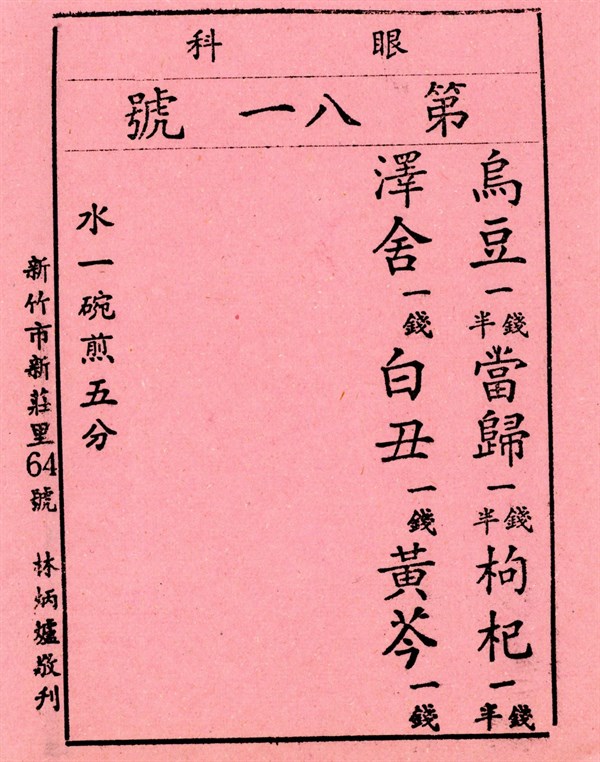 眼科
第八一號
烏豆一錢半當歸一錢半枸杞一錢半
澤舍一錢白丑一錢黃芩一錢
水一碗煎五分
新竹市新莊里64號 林炳爐敬刊